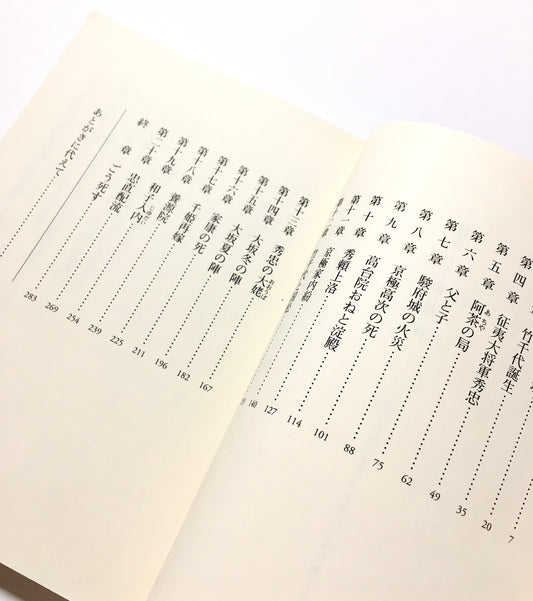 第四章 竹千代誕生 20
第五章 征夷大将軍秀忠 35
第六章 阿茶の局 49
あちゃ
第七章 父と子 62
第八章 駿府城の火災 75
第九章 京極高次の死 88
第十章 高台院おねと淀殿 101
第十一章 秀頼上洛 114
京極家内紛 127
140
第十三章 秀忠の大姥
おおうば
第十四章 大坂冬の陣 167
第十五章 大坂夏の陣 182
第十六章 家康の死 196
第十七章 千姫再嫁 211
第十八章 養源院 225
第十九章 和子入内 239
じゅだい
第二十章 忠直配流 254
終章 ごう死す 269
あとがきに代えて 283
7